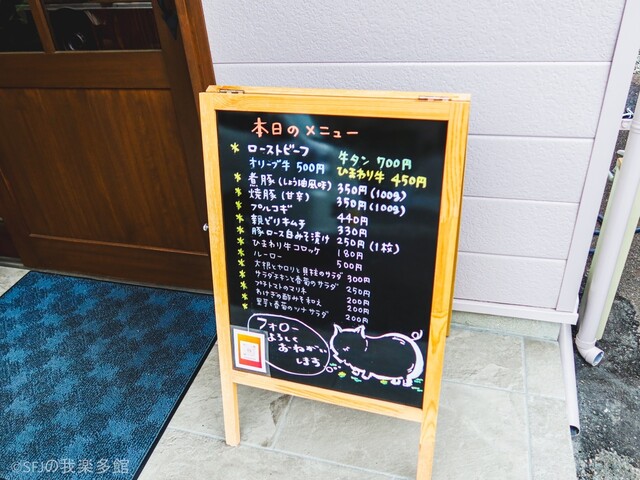 本日のメニュー
* ローストビーフ
オリーブ牛 500円 牛タン 700円
ひまわり牛 450円
* 煮豚(しょう油風味) 350円(100g)
* 焼豚(甘辛) 350円(100g)
* プルコギ 440円
* 親どりキムチ 330円
* 豚ロース白みそ漬け 250円(1枚)
* ひまわり牛コロッケ 180円
* ルーロー 500円
* 大根とセロリと貝柱のサラダ 300円
* サラダチキンと春菊のサラダ 250円
* プチトマトのマリネ 200円
* わけぎの酢みそ和え 200円
* 里芋と春菊のツナサラダ 200円
フォロー
よろしく
おねがい
しまち
©SFJの我楽多館